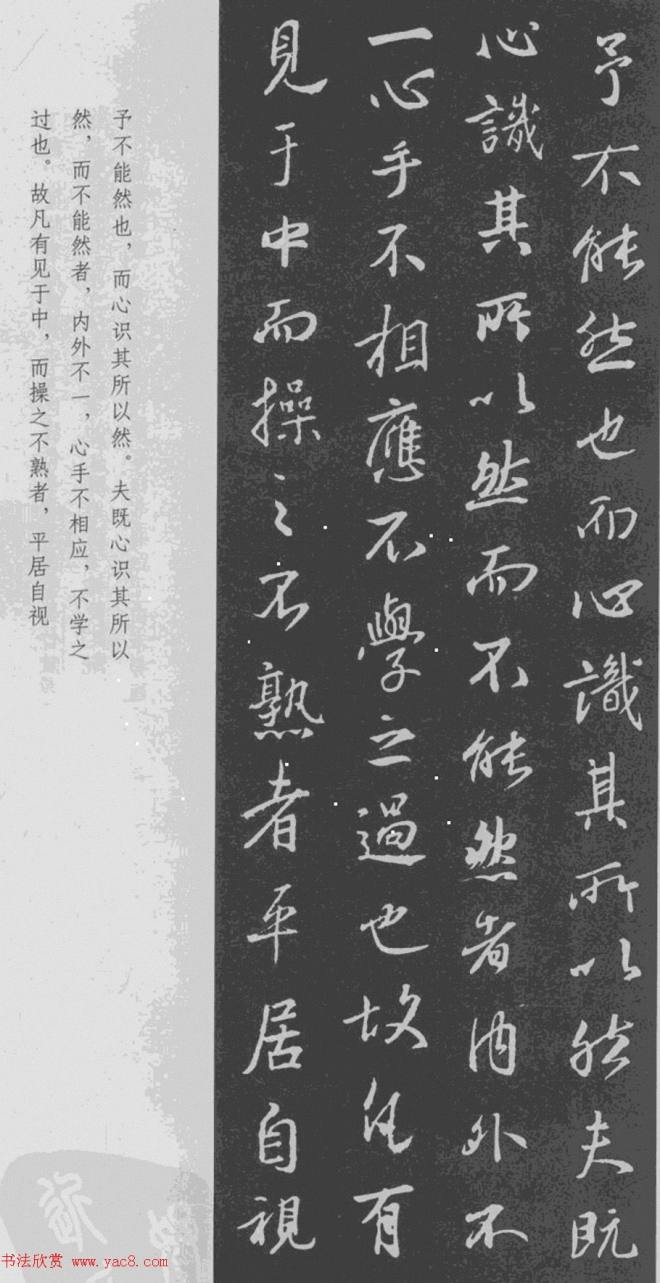 予不能然也而心識其所以然夫既
心識其所以然而不能然者內外不
一心手不相應不學之過也故凡有
見于中而操之不熟者平居自視
予不能然也，而心识其所以然。夫既心识其所以
然，而不能然者，内外不一，心手不相应，不学之
过也。故凡有见于中，而操之不熟者，平居自视
书法欣赏 www.yac8.com